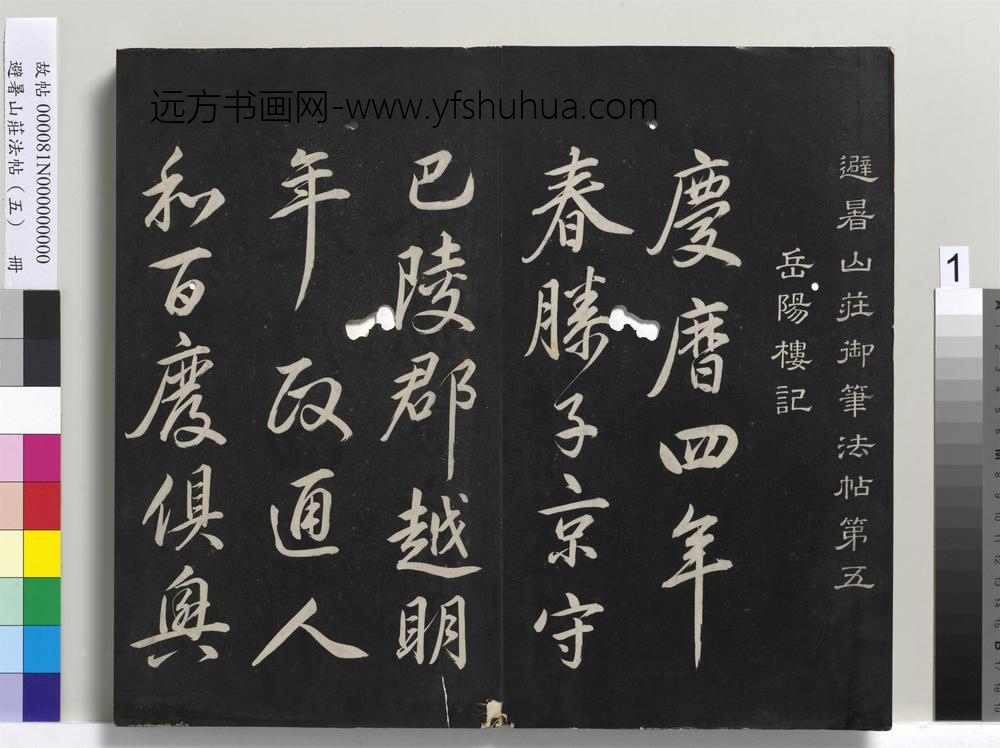 远方书画网-www.yfshuhua.com
避暑山莊御筆法帖第五
岳陽樓記
慶曆四年
春滕子京守
巴陵郡越明
年政通人
和百廢俱興
故帖 000081N000000000
避暑山莊法帖（五） 冊
1